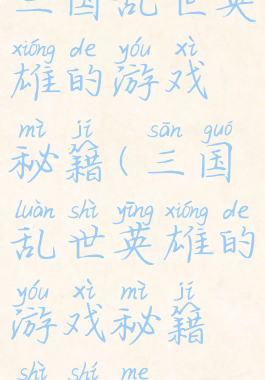 三国乱世英
xióng de yóu xì
雄的游戏
mì jí sān guó
秘籍(三国
luàn shì yīng xióng de
乱世英雄的
yóu xì mì jí
游戏秘籍
shì shí me